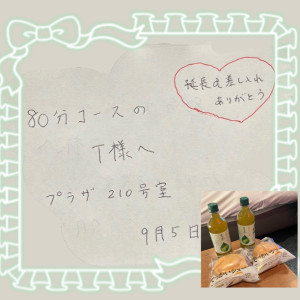 延長&差し入れ
ありがとう
80分コースの
T様へ
プラザ 210号室
9月5日